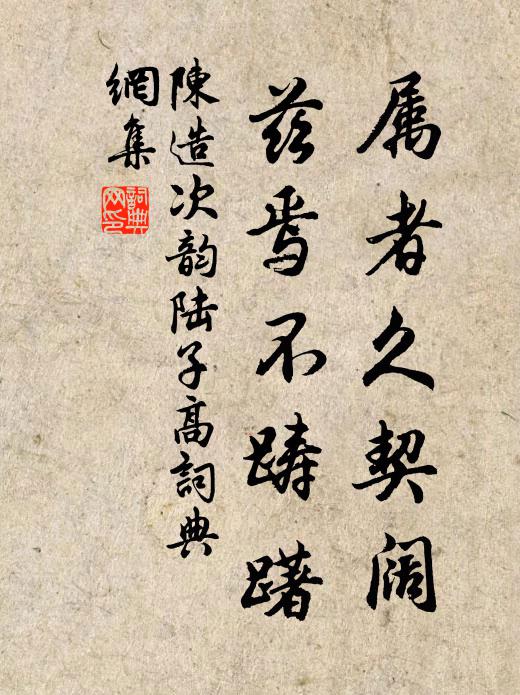 属者久契阔
兹焉不踌躇
陳造次韵陆子高詞典
網集
詞典網印